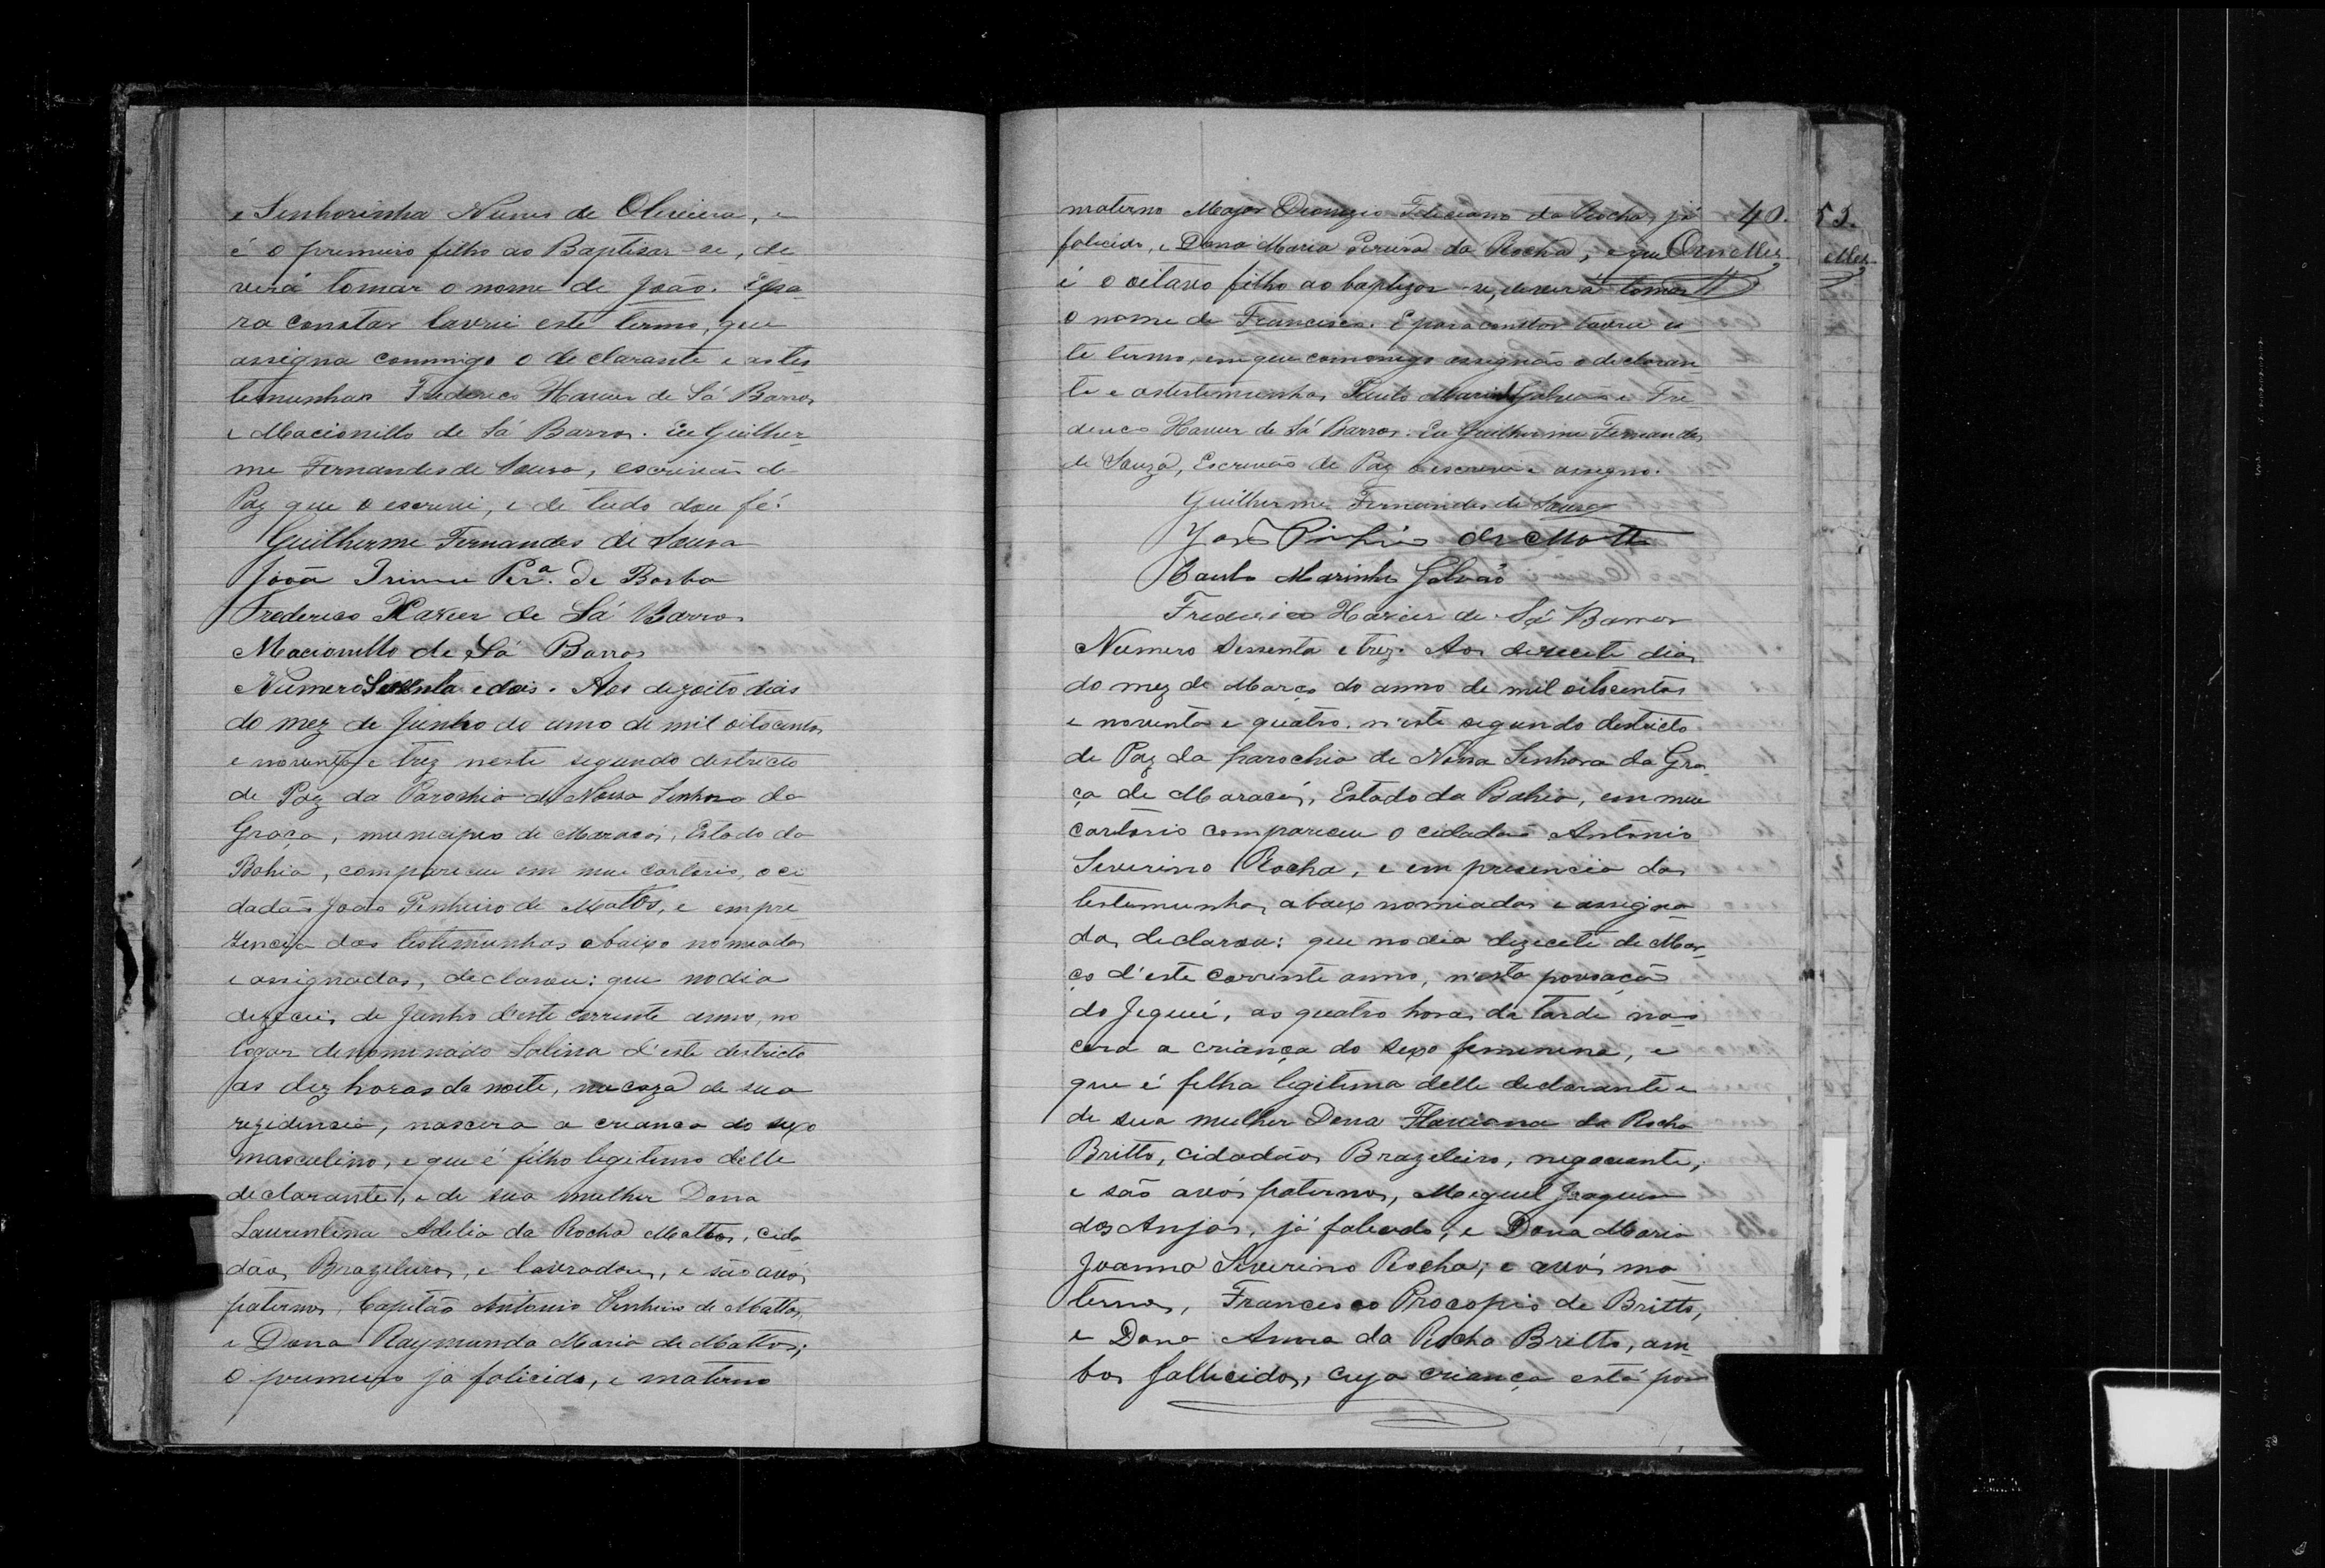 e Senhorinha Nunes de Oliveira, e
é o premeiro filho ao Baptisar-se, de
verá tomar o nome de João. E pa
ra constar lavrei este termo, que
assigna commigo o declarante e as tes
temunhas Frederico Xavier de Sá Barros
e Macionillo de Sá Barros. Eu Guilher
me Fernandes de Sousa, escrivão de
Paz que o escrevi, e de tudo dou fé.
Guilherme Fernandes de Sousa
João Perª. de Borba
Frederico Xavier de Sá Barros
Macionillo de Sá Barros
Numero Sessenta e dois. Aos dezoito dias
do mez de Junho do anno de mil oitocentos
e noventa e trez neste segundo destricto
de Paz da Parochia de Nossa Senhora da
Graça, municipio de Maracás, Estado da
Bahia, compareceu em meu cartorio, o ci
dadão João Pinheiro de Mattos, e em pre
zencia das testemunhas abaixo nomeadas
e assignadas, declarou: que no dia
dezeceis de Junho d'este corrente anno, no
logar denominado Salina d'este destricto
as dez horas da noite, na caza de sua
rezidencia, nascera a creança do sexo
masculino, e que é filho legitimo delle
declarante, e de sua mulher Dona
Laurentina Adelia da Rocha Mattos, cida
dãos Brazileiros, e lavradores, e são avós
paternos, Capitão Antonio Pinheiro de Mattos,
e Dona Raymunda Maria de Mattos;
o premeiro já falicido, e materno
materno Major Dionizio Feliciano da Rocha, já
falicido, e Dona Maria Pereira da Rocha; e que
é o oitavo filho ao baptizar-se, deverá tomar
o nome de Francisca. E para constar lavrei es
te termo, em que commigo assignão o declaran
te e as testemunhas Paulo Marinho Galvão e Fre
derico Xavier de Sá Barros. Eu Guilherme Fernandes
de Souza, Escrivão de Paz o escrevi e assigno.
Guilherme Fernandes de Souza
João Pinheiro de Mattos
Paulo Marinho Galvão
Frederico Xavier de Sá Barros
Numero Sessenta e trez. Aos dezecete dias
do mez de Março do anno de mil oitocentos
e noventa e quatro, n'este segundo destricto
de Paz da parochia de Nossa Senhora da Gra
ça de Maracás, Estado da Bahia, em meu
cartorio compareceu o cidadão Antonio
Severino Rocha, e em presencia das
testemunhas abaixo nomiadas e assigna
das, declarou: que no dia dezecete de Mar
ço d'este corrente anno, n'esta povoação
do Jequié, as quatro horas da tarde nas
cera a criança do sexo femenino, e
que é filha legitima delle declarante e
de sua mulher Dona Flaviana da Rocha
Britto, cidadãos Brazileiros, negociante,
e são avós paternos, Miguel Joaquim
dos Anjos, já falicido, e Dona Maria
Joanna Severino Rocha; e avós ma
ternos, Francisco Procopio de Britto,
e Dona Anna da Rocha Britto, am
bos fallicidos, cuja criança está por
40.
Ornellas
53.
ellas